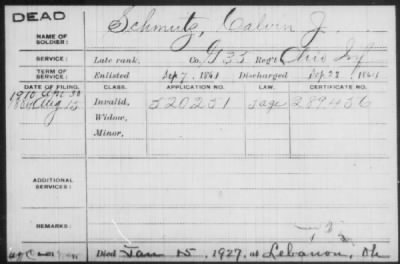 DEAD
NAME OF SOLDIER: Schmutz, Calvin J.
SERVICE: Late rank, Co. G 35 Reg't Ohio Inf
TERM OF SERVICE: Enlisted Sep 7, 1861 Discharged Sep 28 1864
DATE OF FILING. CLASS. APPLICATION NO. LAW. CERTIFICATE NO.
Aug 15 Invalid, 520251 289456
Widow,
Minor,
ADDITIONAL SERVICES:
REMARKS:
Died Jan 15, 1927, at Lebanon, Oh